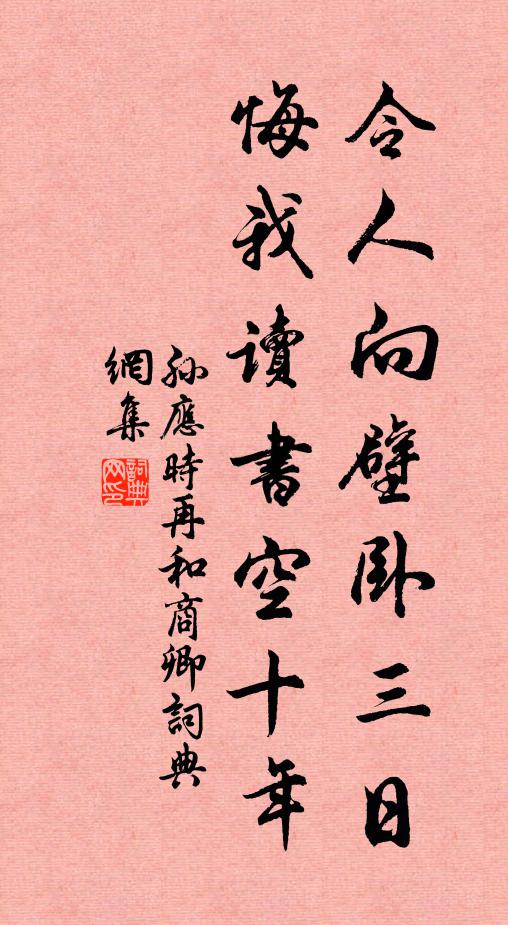 令人向壁卧三日
悔我读書空十年
孙應時再和商卿詞典
網集
詞典網印